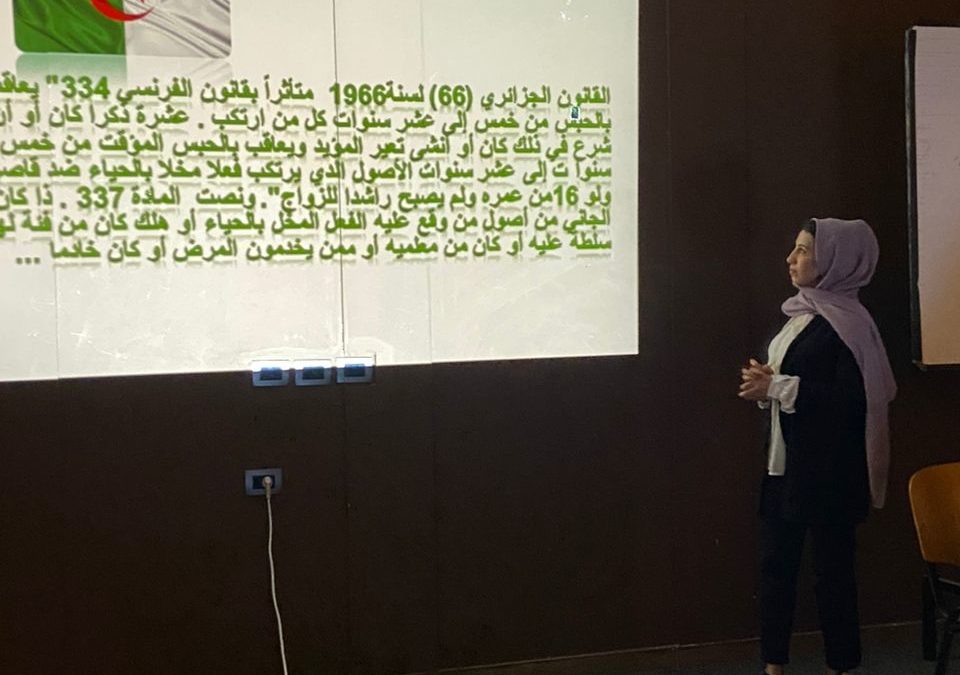 القانون الجزائري (66) لسنة1966 متأثراً بقانون الفرنسي 334" يعاقب
بالحبس من خمس إلى عشر سنوات كل من ارتكب . عشرة ذكرا كان أو أن
شرع في ذلك كان أو أنثى تعير المؤيد ويعاقب بالحبس المؤقت من خمس
سنوا ت إلى عشر سنوات الأصول الذي يرتكب فعلا مخلا بالحياء ضد قاصر
ولو 16من عمره ولم يصبح راشدا للزواج". ونصت المادة 337 . ذا كان
الجاني من أصول من وقع عليه الفعل المخل بالحياء أو هتك كان من فئة
سلطة عليه أو كان من معلميه أو ممن يخدمون المرض أو كان خادما ...